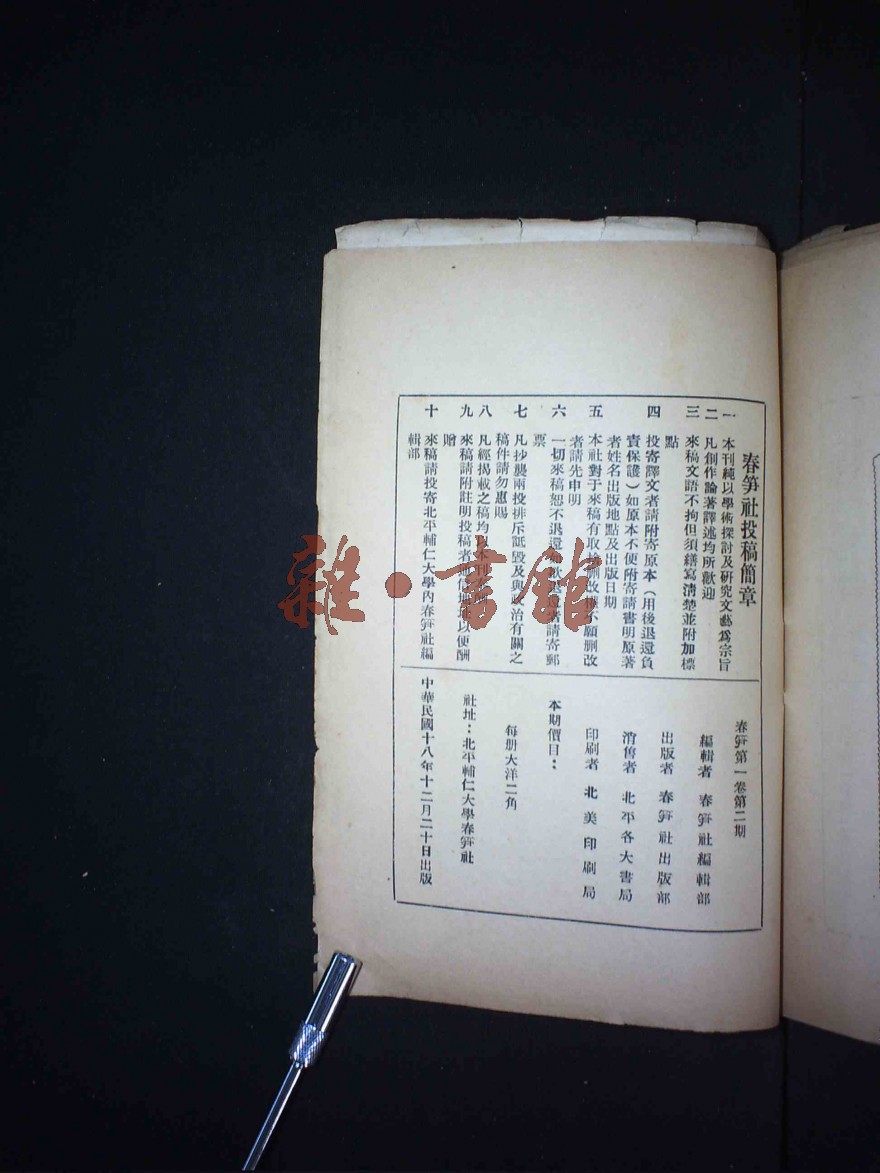 春筍社投稿簡章
一 本刊純以學術探討及研究文藝爲宗旨
二 凡創作論著譯述均所歡迎
三 來稿文語不拘但須繕寫清楚並附加標
點
四 投寄譯文者請附寄原本(用後退還負
責保護)如原本不便附寄請書明原著
者姓名出版地點及出版日期
五 本社對于來稿有取捨删改權不願删改
者請先申明
六 一切來稿恕不退還如欲退還者請寄郵
票
七 凡抄襲兩投排斥詆毀及與政治有關之
稿件請勿惠賜
八 凡經揭載之稿均以本刊
九 來稿請附註明投稿者以便酬
贈
十 來稿請投寄北平輔仁大學內春筍社編
輯部
春筍第一卷第二期
編輯者 春筍社編輯部
出版者 春筍社出版部
消售者 北平各大書局
印刷者 北美印刷局
本期價目:
每册大洋二角
社址:北平輔仁大學春筍社
中華民國十八年十二月二十日出版
雜·書館